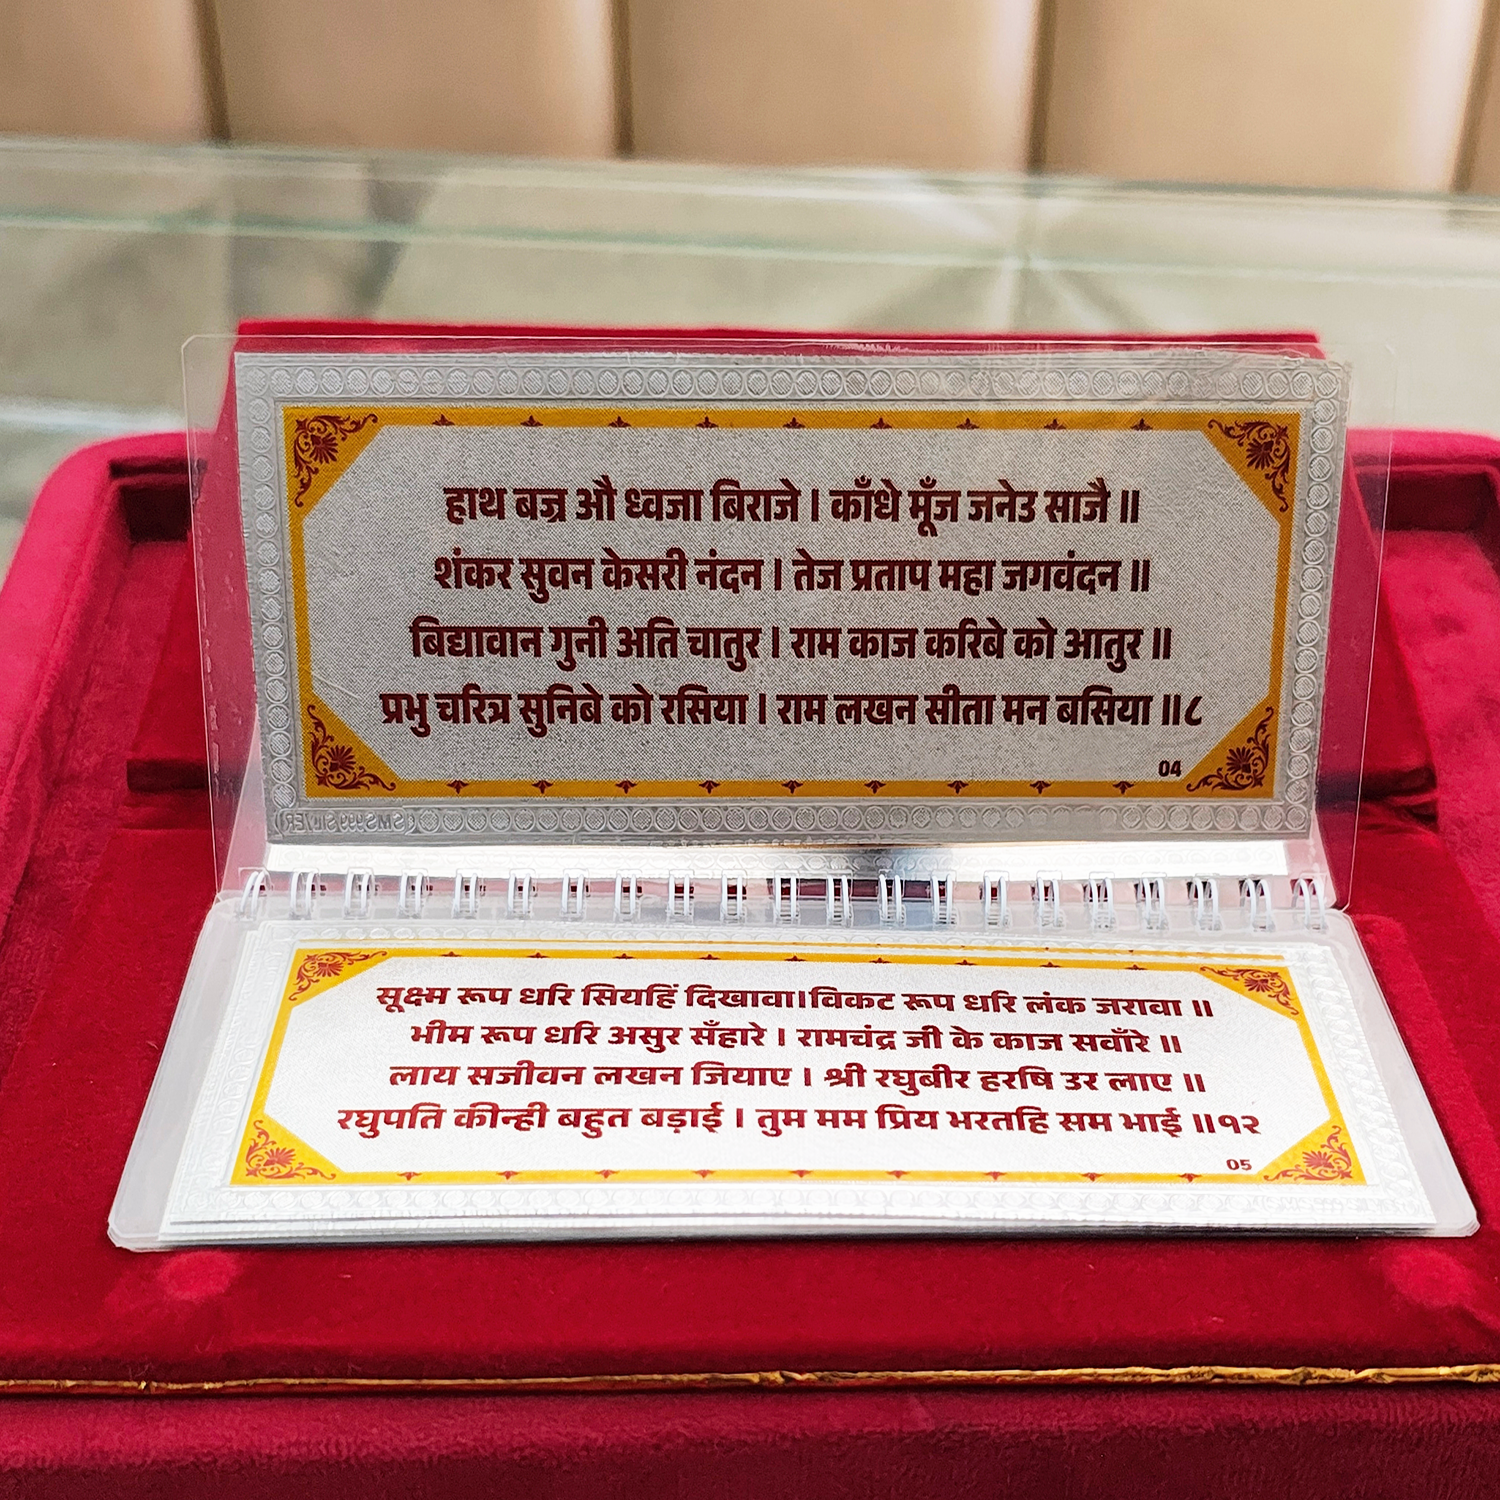 हाथ बज्र औ ध्वजा बिराजे । काँधे मूँज जनेउ साजै ॥
शंकर सुवन केसरी नंदन । तेज प्रताप महा जगवंदन ॥
बिद्यावान गुनी अति चातुर । राम काज करिबे को आतुर ॥
प्रभु चरित्र सुनिबे को रसिया । राम लखन सीता मन बसिया ॥८
04
SMS 999 SILVER
सूक्ष्म रूप धरि सियहिं दिखावा।विकट रूप धरि लंक जरावा ॥
भीम रूप धरि असुर सँहारे । रामचंद्र जी के काज सवाँरे ॥
लाय सजीवन लखन जियाए । श्री रघुबीर हरषि उर लाए ॥
रघुपति कीन्ही बहुत बड़ाई । तुम मम प्रिय भरतहि सम भाई ॥१२
05